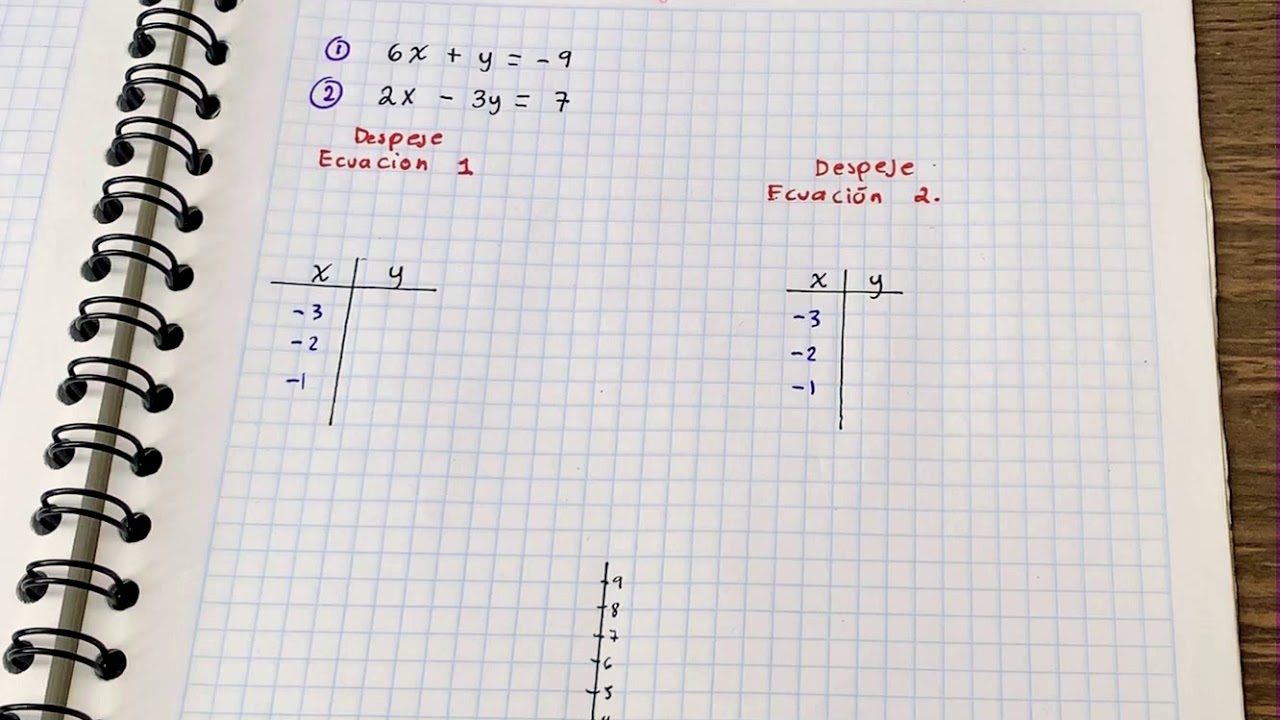 ① 6x + y = -9
② 2x - 3y = 7
Despeje
Ecuacion 1
x y
-3
-2
-1
Despeje
Ecuación 2.
x y
-3
-2
-1
9
8
7
6
5